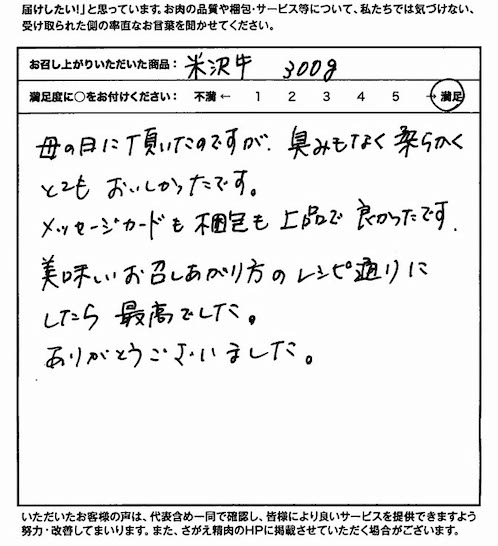 届けしたい！」と思っています。お肉の品質や梱包・サービス等について、私たちでは気づけない、
受け取られた側の率直なお言葉を聞かせてください。
お召し上がりいただいた商品： 米沢牛 300g
満足度に○をお付けください： 不満 ← 1 2 3 4 5 → 満足
母の日に頂いたのですが、臭みもなく柔らかく
とてもおいしかったです。
メッセージカードも梱包も上品で良かったです.
美味しいお召しあがり方のレシピ通りに
したら最高でした。
ありがとうございました。
いただいたお客様の声は、代表含め一同で確認し、皆様により良いサービスを提供できますよう
努力・改善してまいります。また、さがえ精肉のHPに掲載させていただく場合がございます。